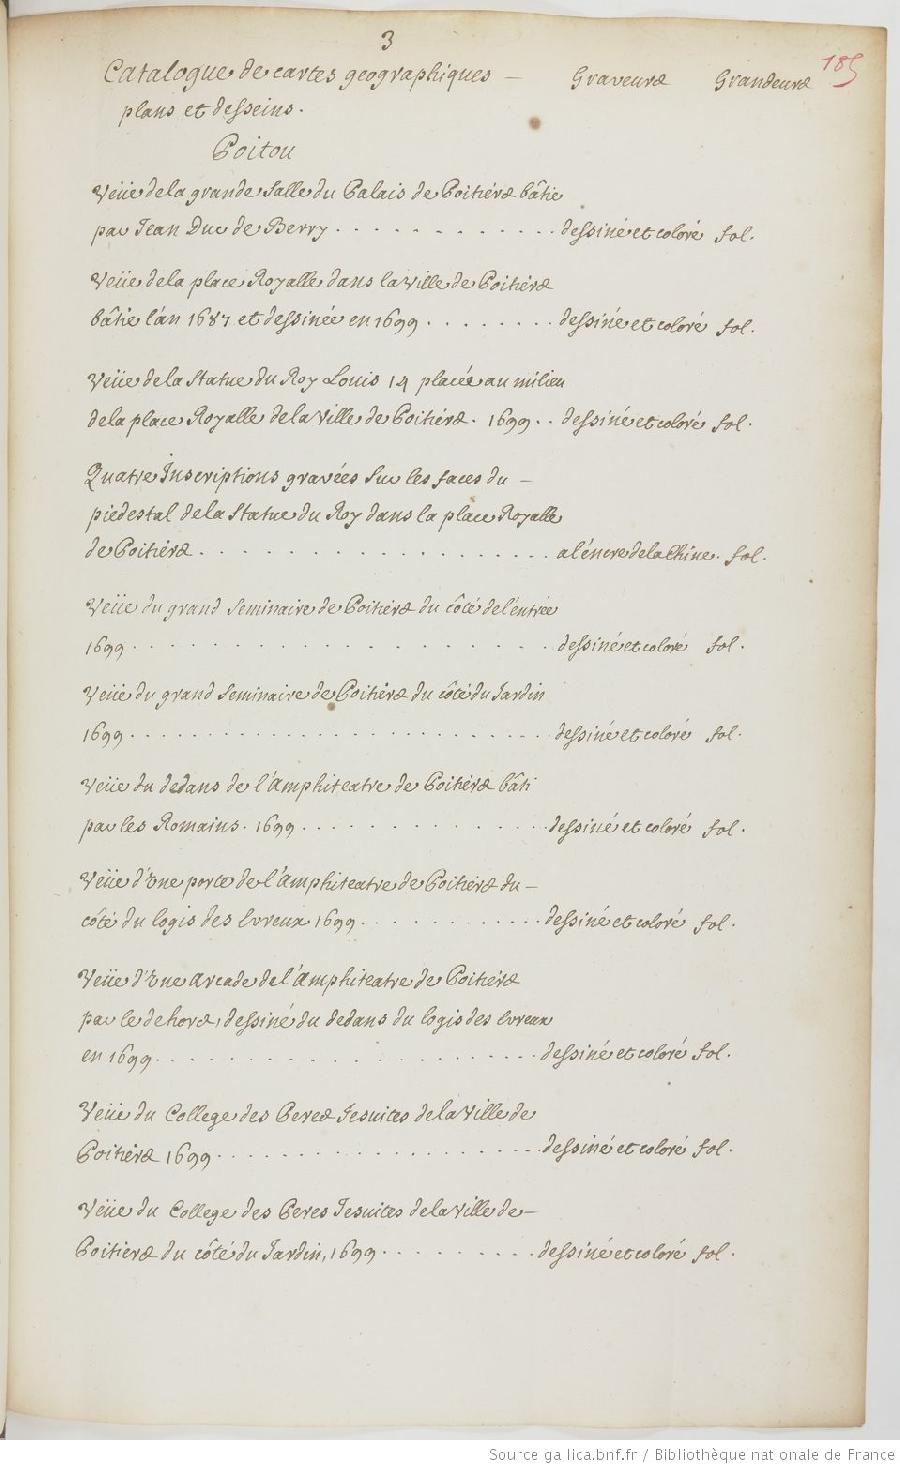 3
185
Catalogue de cartes geographiques — Graveurs Grandeurs
plans et desseins.
Poitou
Veüe de la grande salle du Palais de Poitiérs bâtie
par Jean Duc de Berry . . . . . . . . . . . . dessiné et coloré fol.
Veüe de la place Royalle dans la ville de Poitiérs
bâtie l'an 1687 et dessinée en 1699 . . . . . . . . dessiné et coloré fol.
Veüe de la Statue du Roy Louis 14 placée au milieu
de la place Royalle de la Ville de Poitiérs. 1699 . . dessiné et coloré fol.
Quatre Inscriptions gravées sur les faces du —
piedestal de la Statue du Roy dans la place Royalle
de Poitiérs . . . . . . . . . . . . . . . . . . a l'encre de la Chine. fol.
Veüe du grand Seminaire de Poitiérs du côté de l'entrée
1699 . . . . . . . . . . . . . . . . . . . dessiné et coloré fol.
Veüe du grand Seminaire de Poitiérs du côté du Jardin
1699 . . . . . . . . . . . . . . . . . . . . . . . . dessiné et coloré fol.
Veüe du dedans de l'Amphiteatre de Poitiérs bâti
par les Romains. 1699 . . . . . . . . . . . . dessiné et coloré fol.
Veüe d'Une porte de l'Amphiteatre de Poitiérs du —
côté du logis des Evreux 1699 . . . . . . . . . . . dessiné et coloré fol.
Veüe d'Une Arcade de l'Amphiteatre de Poitiérs
par le dehors, dessiné du dedans du logis des Evreux
en 1699 . . . . . . . . . . . . . . . . . . . dessiné et coloré fol.
Veüe du College des Peres Jesuites de la Ville de
Poitiérs 1699 . . . . . . . . . . . . . . . . . . . dessiné et coloré fol.
Veüe du College des Peres Jesuites de la Ville de —
Poitiers du côté du Jardin, 1699 . . . . . . . . . dessiné et coloré fol.
Source gallica.bnf.fr / Bibliothèque nationale de France